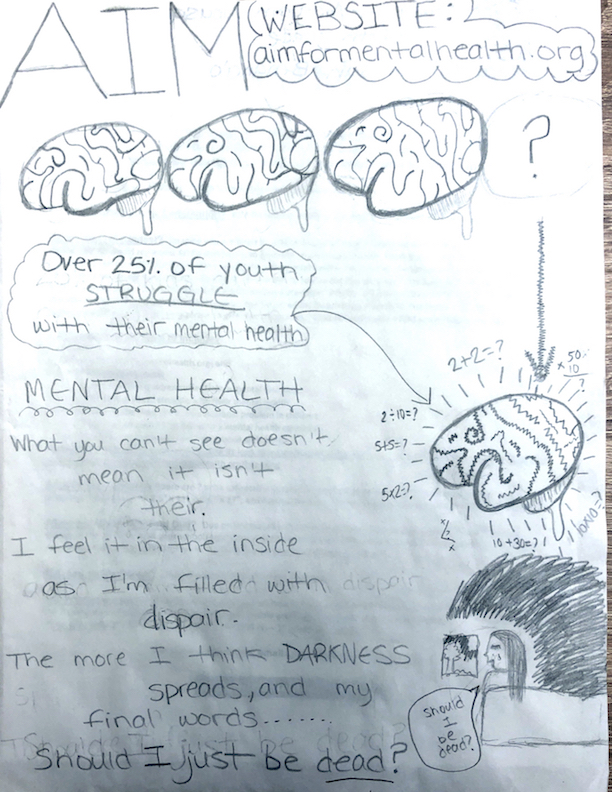 AIM
WEBSITE:
aimformentalhealth.org
?
Over 25% of youth
STRUGGLE
with their mental health
2+2=?
x 50
10
?
2÷10=?
5+5=?
5x2=?
10+30=?
10x10=?
MENTAL HEALTH
What you can't see doesn't
mean it isn't
their.
I feel it in the inside
as I'm filled with
dispair.
The more I think DARKNESS
spreads, and my
final words.......
Should I just be dead?
Should
I
be
dead?